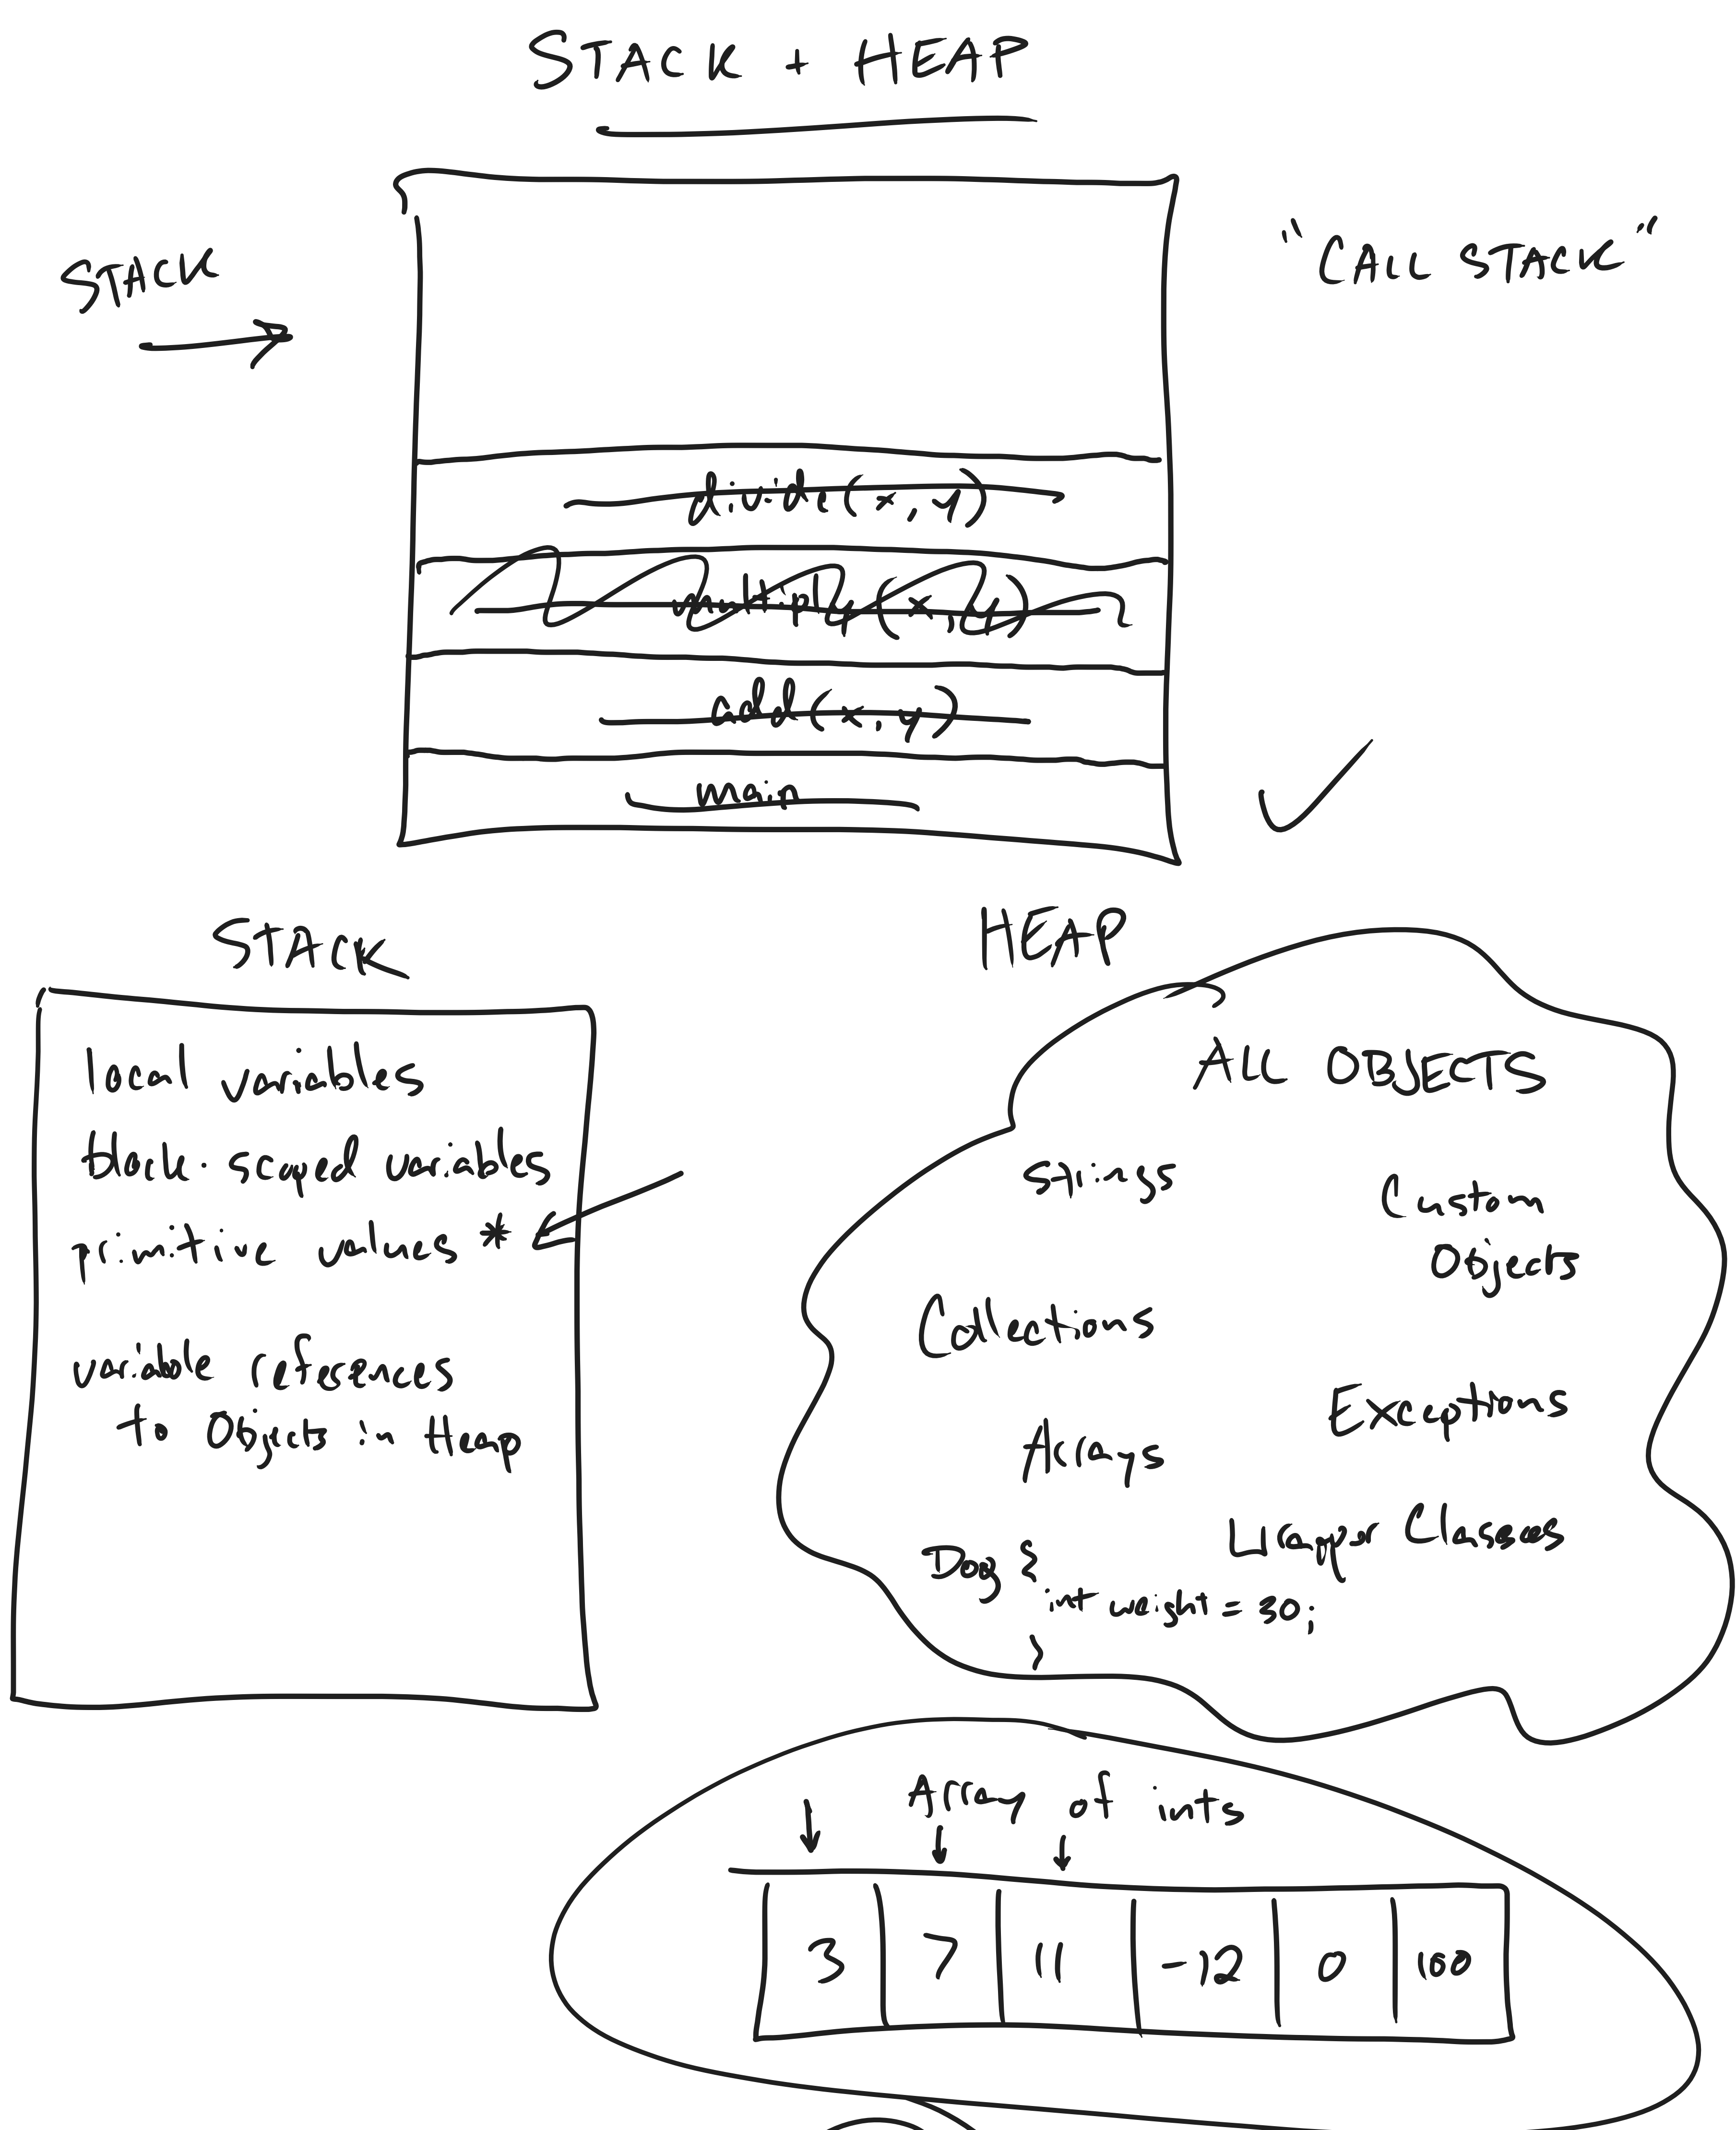 STACK + HEAP
STACK
"CALL STACK"
divide(x,y)
multiply(x,y)
add(x,y)
main
STACK
local variables
block-scoped variables
primitive values *
variable references
to Objects in Heap
HEAP
ALL OBJECTS
Strings
Custom
Objects
Collections
Exceptions
Arrays
Wrapper Classes
Dog {
int weight = 30;
}
Array of ints
3 7 11 -12 0 100